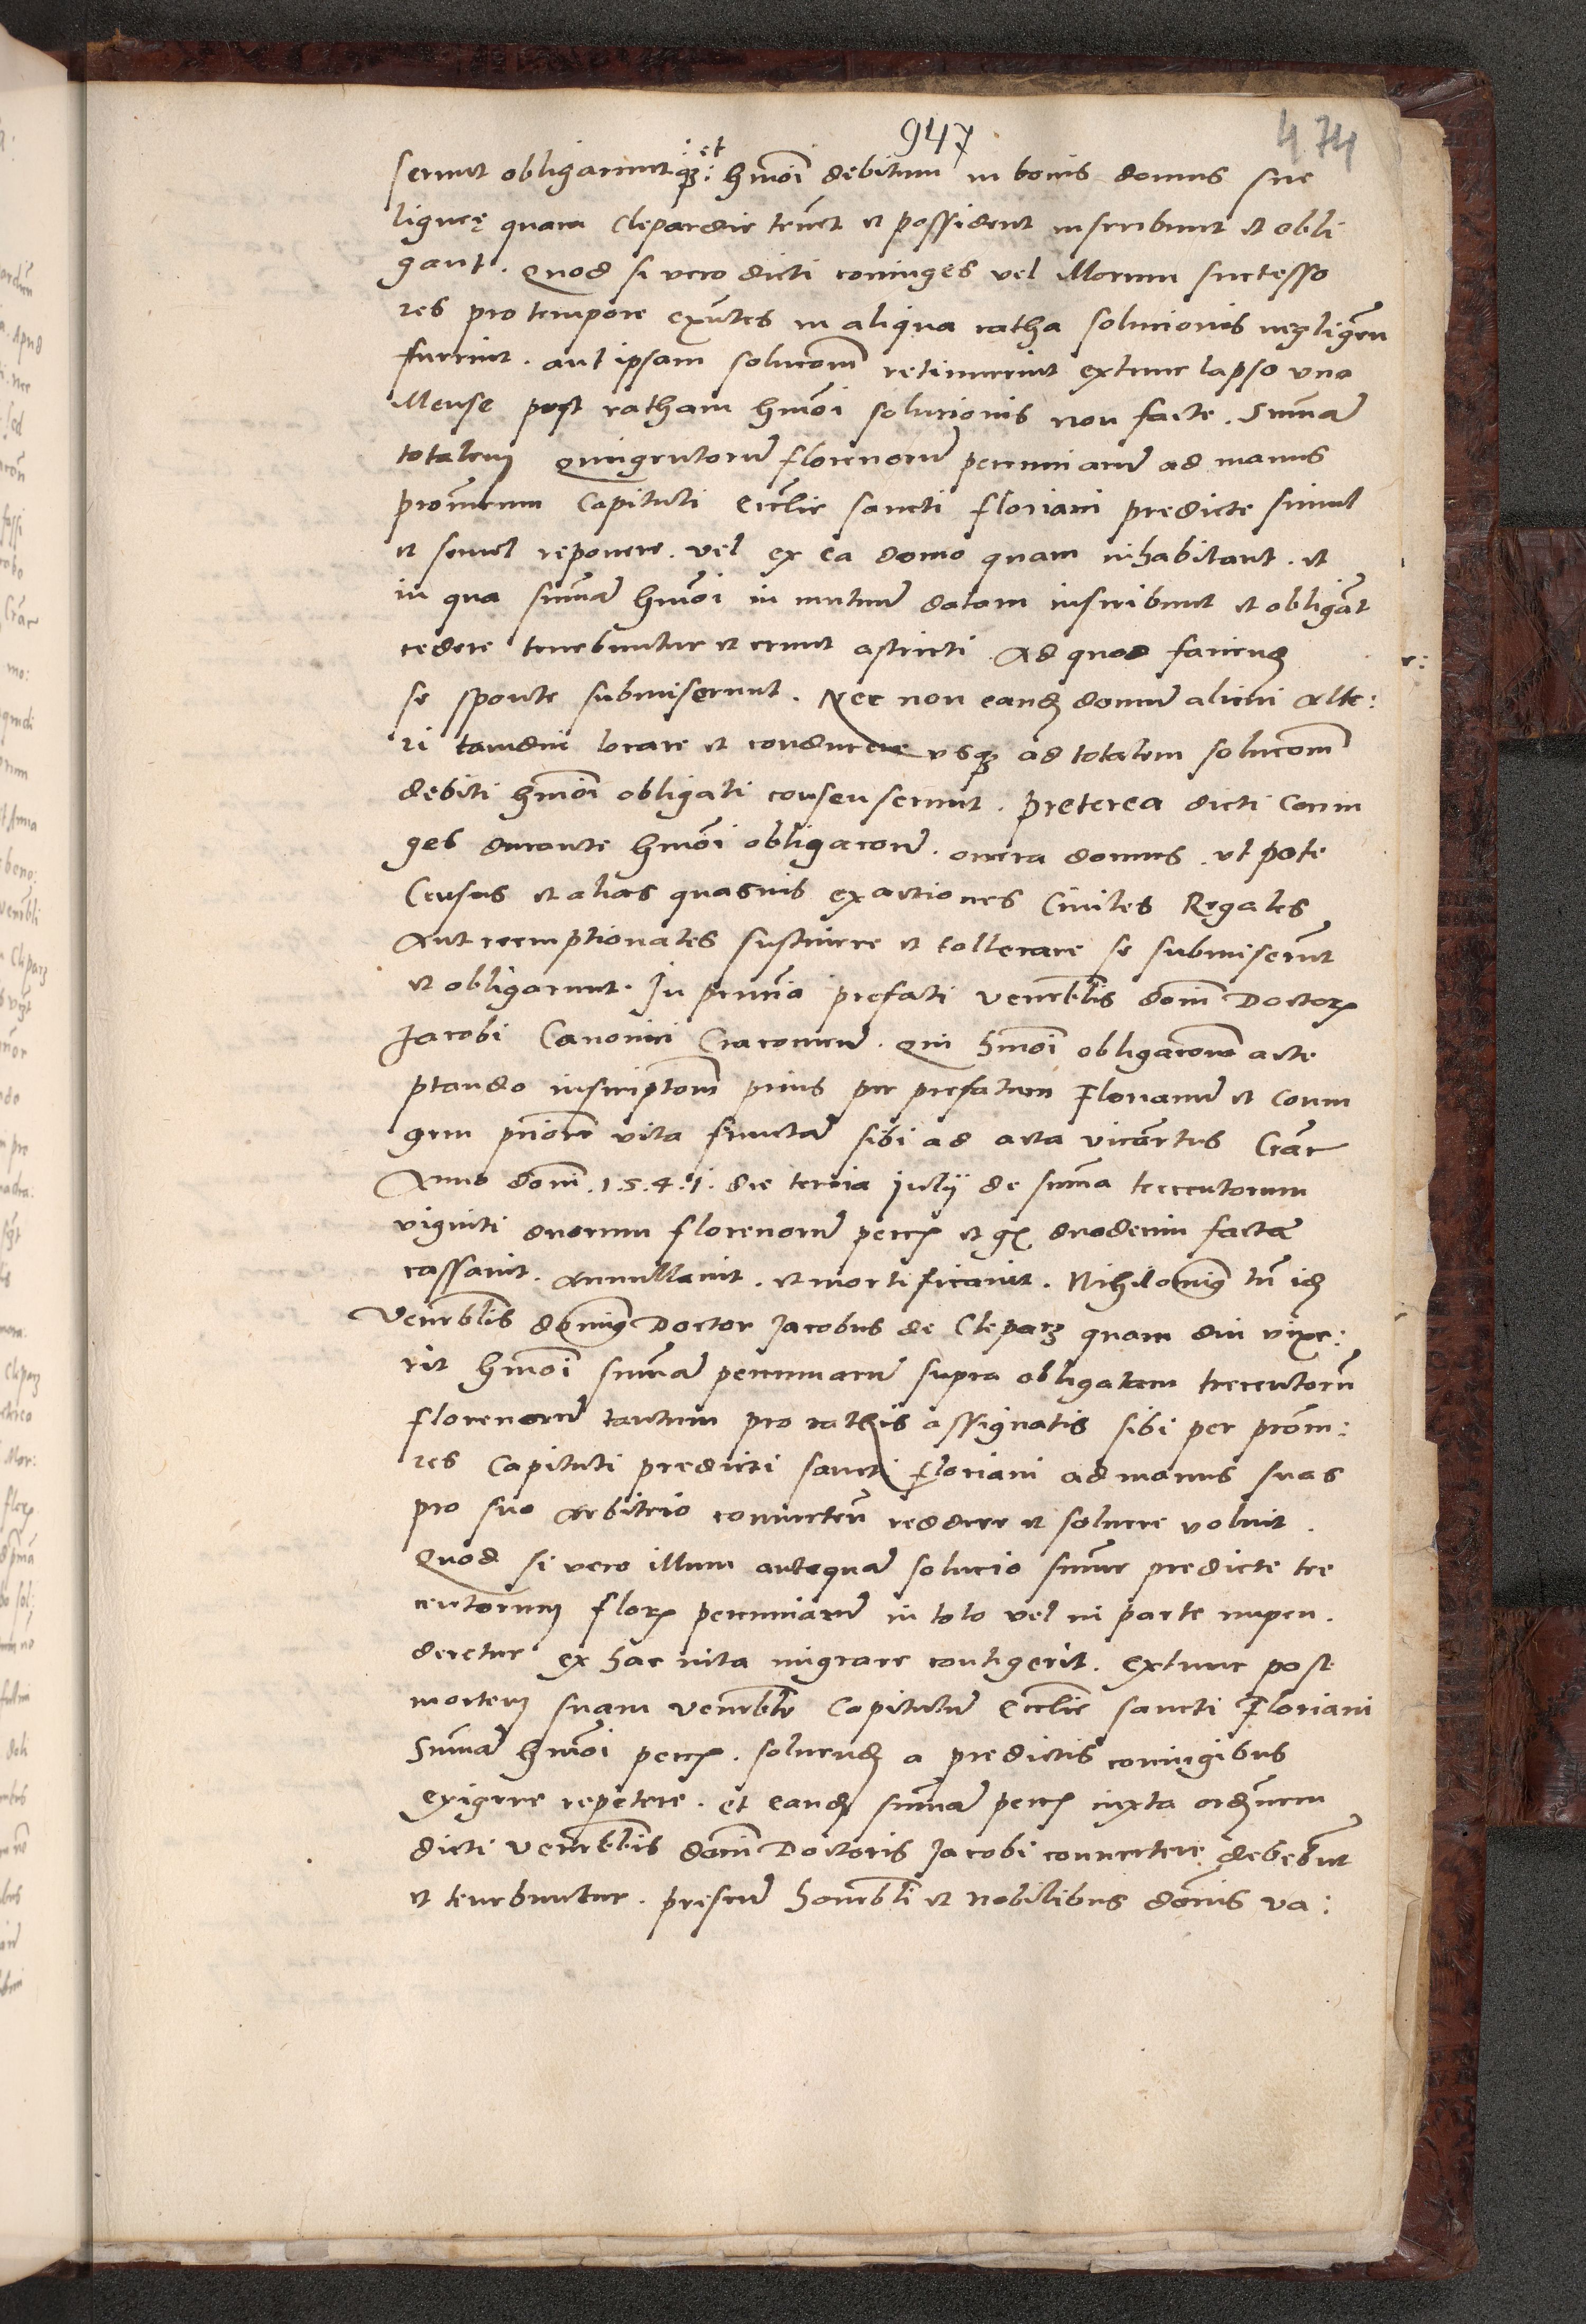 947
474
serunt obligaruntqȝ: et hmōi debitum in bonis domus sue
ligneę quam Clepardie tenēt et possident inscribunt et obli
gant. Quod si vero dicti coniuges vel illorum successo
res pro tempore exn̄tes in aliqua ratha solucionis negligēn
fuerint. aut ipsam solucōm retinuerint extunc lapso vno
Mense post ratham hmōi solucionis non facte. Sum̄ā
totalem quingentorū florenorū pecuniarū ad manus
promrum Capituli Ecclīe sancti floriani predicte simul
et semel reponere. vel ex ea domo quam inhabitant. et
in qua sum̄ā hmōi in mutuū datam inscribunt et obligāt
cedere tenebuntur et erunt astricti Ad quod faciend
se sponte submiserunt. Nec non eand domū alicui alte:
ri tamdiu locare et conducere vsqȝ ad totalem solucōm
debiti hmōi obligati consenserunt. Preterea dicti Coniu
ges durante hmōi obligacōnē. onera domus. vt pote
Census et alias quasuis exactiones Ciuiles Regales
Aut contributionales sustinere et tollerare se submiserūt
et obligarunt. In pn̄tia prefati venerblis domī Doctor
Jacobi Canonici Cracouieñ. Qui hmōi obligacōnē acce
ptando inscriptōm prius per prefatum Florianū et Coniu
gem priorē vita functā sibi ad acta vicartus Crac
Anno domī. 1.5.4.1. die tercia Julij de sum̄a trecentorum
viginti duorum florenorū pecū et gr duodecim factā
cassauit. Annullauit. et mortificauit. Nihilominus tn̄ id
Venerblis dominus Doctor Jacobus de Cleparȝ quam diu vixe:
rit hmōi sum̄ā pecuniarū supra obligatam trecentorū
florenorū tantum pro rathis assignatis sibi per prom̄:
res Capituli predicti sancti Floriani ad manus suas
pro suo Arbitrio conuertendū reddere et soluere voluit.
Quod si vero illum antequā solucio sum̄e predicte tre
centorum flor pecuniarū in toto vel in parte impen.
deretur ex hac vita migrare contigerit. extunc post
mortem suam venerble Capitulū Ecclīe sancti Floriani
Sum̄ā hmōi pecū. soluend a predictis coniugibus
exigere repetere. et eand sum̄ā pecū iuxta ordn̄cem
dicti venerblis domī Doctoris Jacobi conuertere debebūt
et tenebuntur. presen̄ honorbli et Nobilibus domīs va: